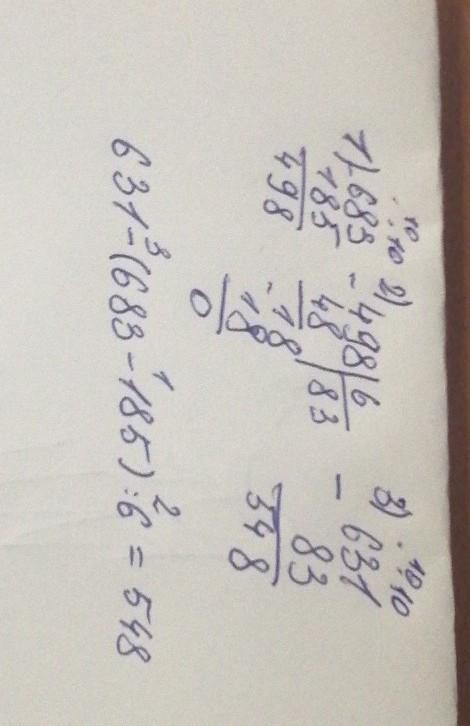 1) -683 2) -498|6 3) -631
185 48 |83 83
498 -18 548
18
0
631-(683-185):6=548